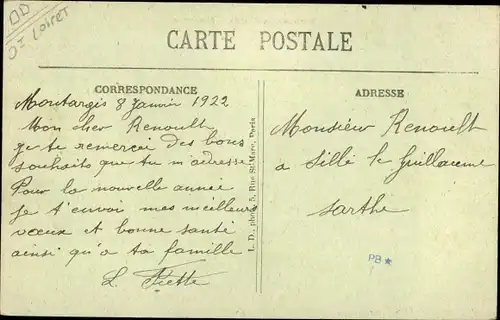 Dt Loiret
CARTE POSTALE
CORRESPONDANCE
Montargis 8 Janvier 1922
Mon cher Renoult
je te remercie des bons
souhaits que tu m'adresse
Pour la nouvelle année
je t'envoi mes meilleurs
vœux et bonne santé
ainsi qu'a ta famille
L.
L. D., phot., 5, Rue St-Marc, Paris
ADRESSE
Monsieur Renoult
a Sillé le Guillaume
Sarthe
PB *